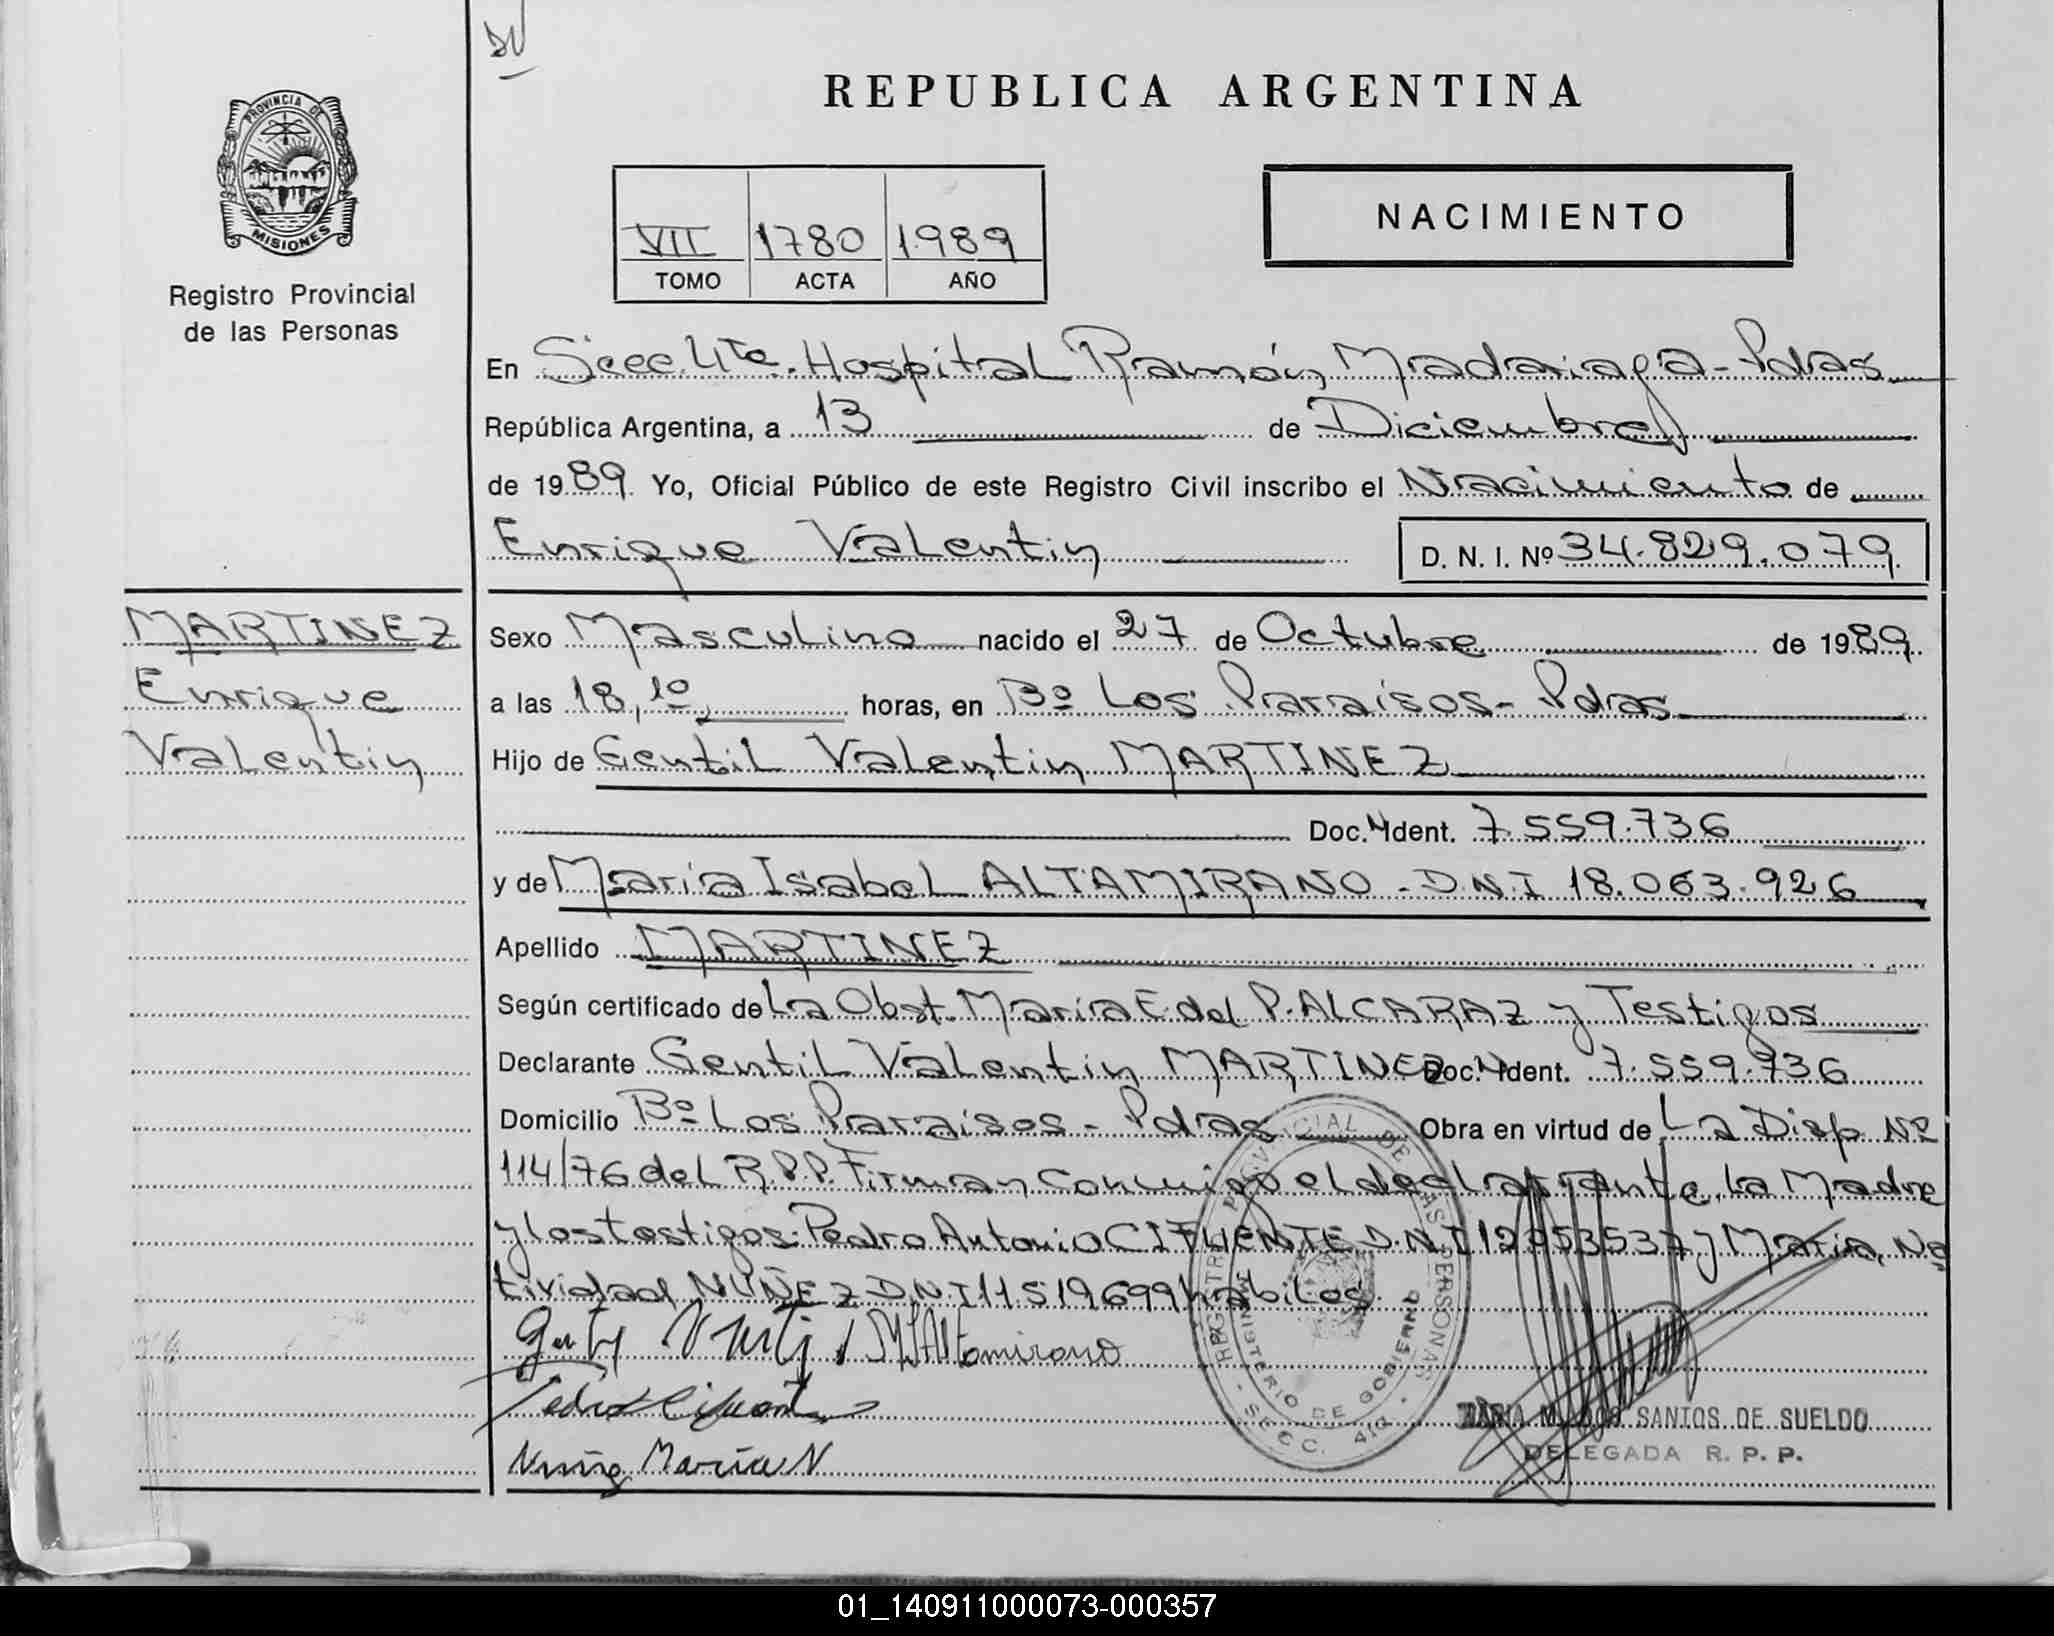 REPUBLICA ARGENTINA
PROVINCIA DE
MISIONES
Registro Provincial
de las Personas
VII 1780 1989
TOMO ACTA AÑO
NACIMIENTO
En Secc. 4ta. Hospital Ramón Madariaga - Pdas
República Argentina, a 13 de Diciembre
de 1989. Yo, Oficial Público de este Registro Civil inscribo el Nacimiento de
Enrique Valentin D. N. I. Nº 34.829.079
MARTINEZ
Enrique
Valentin
Sexo Masculino nacido el 27 de Octubre de 1989.
a las 18,10 horas, en Bº Los Paraisos - Pdas
Hijo de Gentil Valentin MARTINEZ
Doc. Ident. 7.559.736
y de Maria Isabel ALTAMIRANO - D.N.I 18.063.926
Apellido MARTINEZ
Según certificado de La Obst. Maria E. del P. ALCARAZ y Testigos
Declarante Gentil Valentin MARTINEZ Doc. Ident. 7.559.736
Domicilio Bº Los Paraisos - Pdas Obra en virtud de La Disp Nº
114/76 del R.P.P. Firman conmigo el declarante, la Madre
y los testigos: Pedro Antonio CIFUENTE D.N.I y Maria Na
tividad NUÑEZ D.N.I 11519699 habiles
M I Altamirano
Pedro Cifuente
Nuñez Maria N
REGISTRO PROVINCIAL DE LAS PERSONAS
MINISTERIO DE GOBIERNO
SECC. 4ta
MARIA M. DOS SANTOS DE SUELDO
DELEGADA R. P. P.
01_140911000073-000357